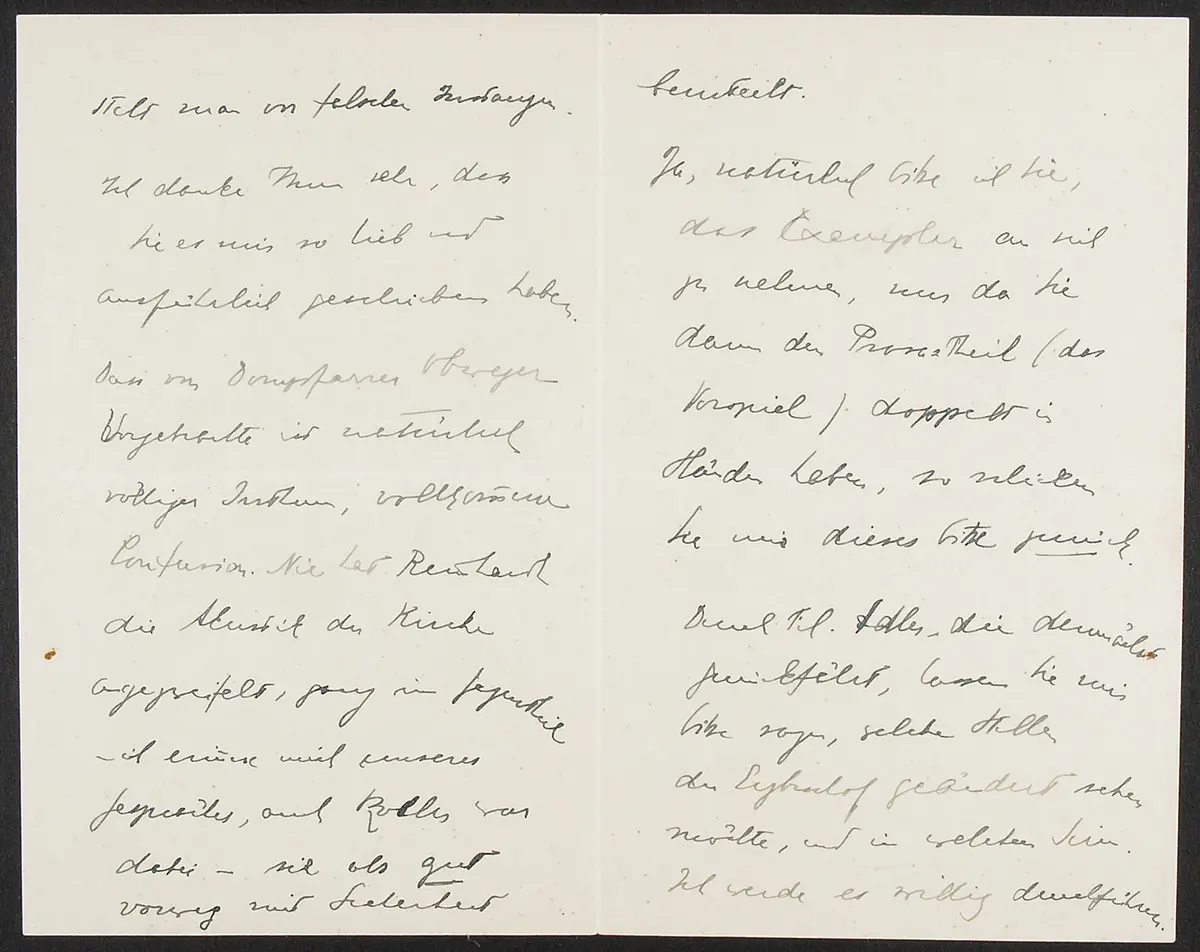 steht man vor falschen Instanzen.
Ich danke Ihnen sehr, dass
Sie es mir so lieb und
ausführlich geschrieben haben.
Das von Dompfarrer Obweger
Vorgebrachte ist natürlich
völliger Irrthum, vollkommene
Confusion. Nie hat Reinhardt
die Akustik der Kirche
angezweifelt, ganz im Gegentheil
– ich erinnere mich unseres
Gespräches, auch Roller war
dabei – sie als gut
vorweg mit Sicherheit
beurteilt.
Ja, natürlich bitte ich Sie,
das Exemplar an sich
zu nehmen, nur da Sie
dann den Prosa-Theil (das
Vorspiel) doppelt in
Händen haben, so schicken
Sie mir dieses bitte zurück.
Durch Frl. Adler, die demnächst
zurückfährt, lassen Sie mir
bitte sagen, welche Stellen
der Erzbischof geändert sehen
möchte, und in welchem Sinn.
Ich werde es willig durchführen.